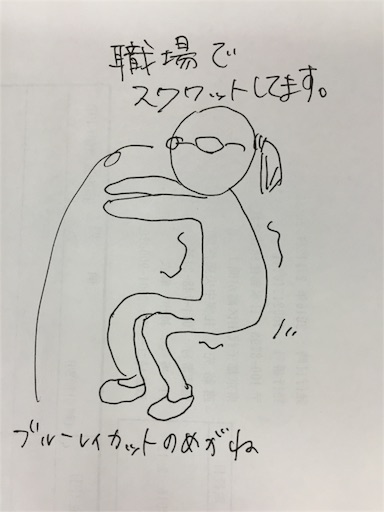 職場で
スクワットしてます。
ブルーレイカットのめがね